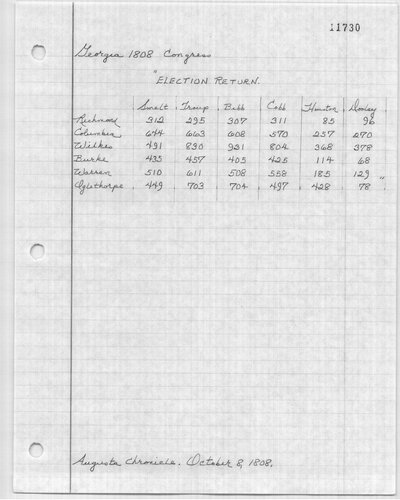 11730
Georgia 1808 Congress
"Election Return.
Smelt Troup Bibb Cobb Houston Dooley
Richmond 312 295 307 311 85 96
Columbia 644 663 608 570 257 270
Wilkes 491 830 921 802 368 378
Burke 435 457 405 425 114 68
Warren 510 611 508 558 185 129
Oglethorpe 449 703 704 497 428 78 "
Augusta Chronicle. October 8, 1808.